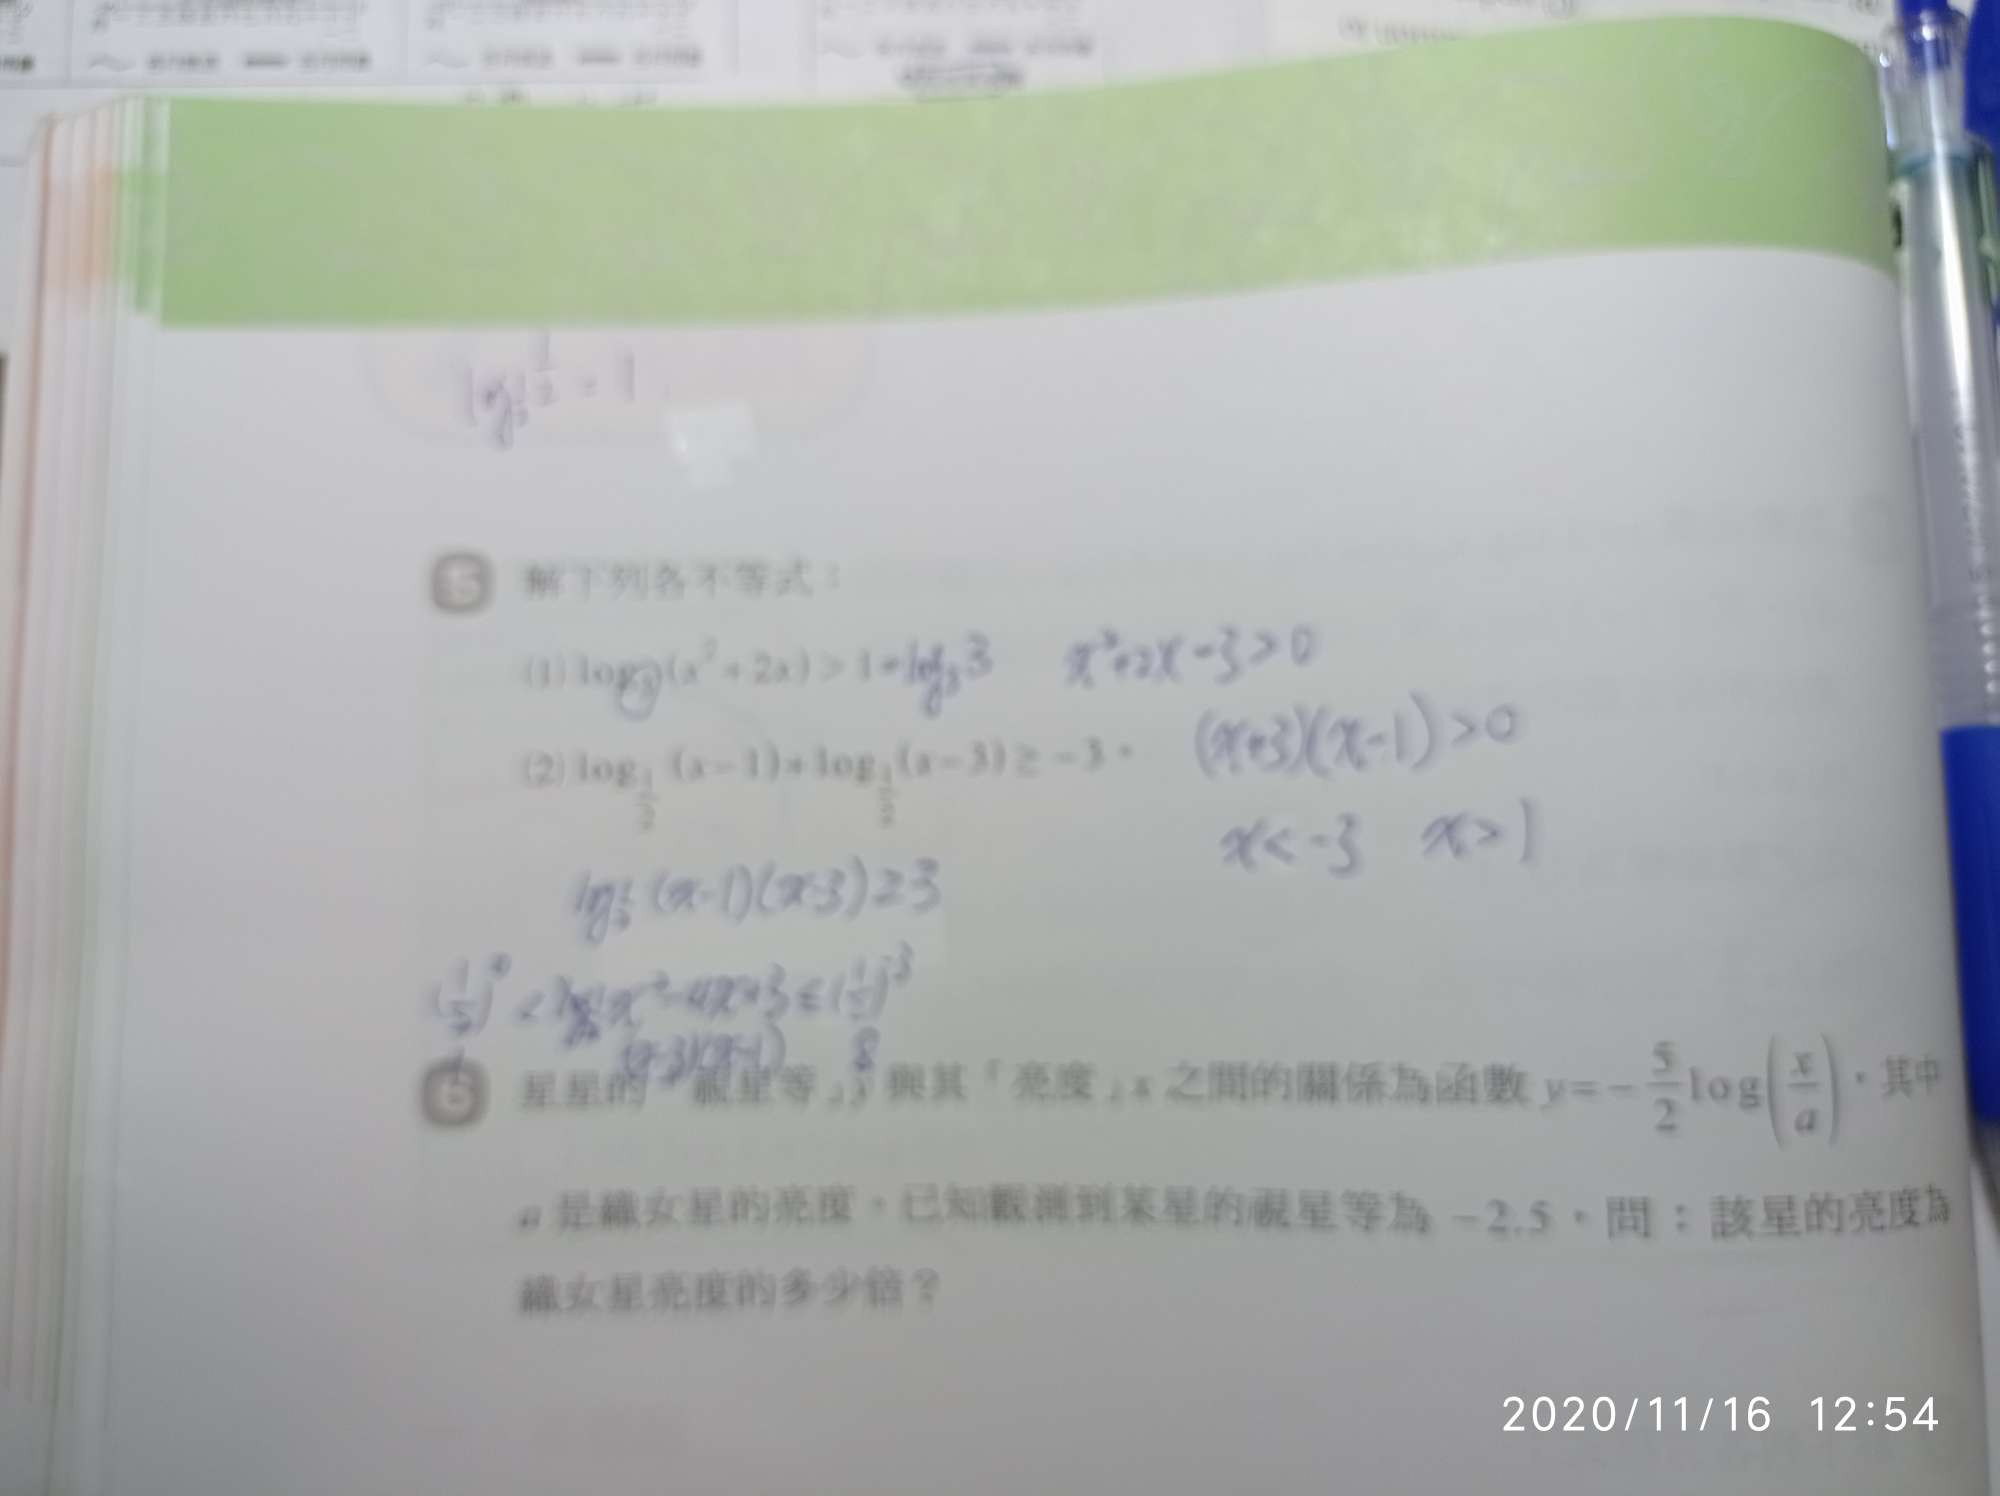 log½ ½ = 1
解下列各不等式：
(1) log₃(x²+2x) > 1 = log₃3 x²+2x-3>0
(x+3)(x-1)>0
(2) log½ (x-1)+log½ (x-3) ≥ -3。
x<-3 x>1
log½ (x-1)(x-3)≥3
x²-4x+3≤(½)⁻³
(x-3)(x-1) 8
星星的「視星等」y 與其「亮度」x 之間的關係為函數 y=-5/2 log(x/a)，其中
a 是織女星的亮度。已知觀測到某星的視星等為 -2.5，問：該星的亮度為
織女星亮度的多少倍？
2020/11/16 12:54